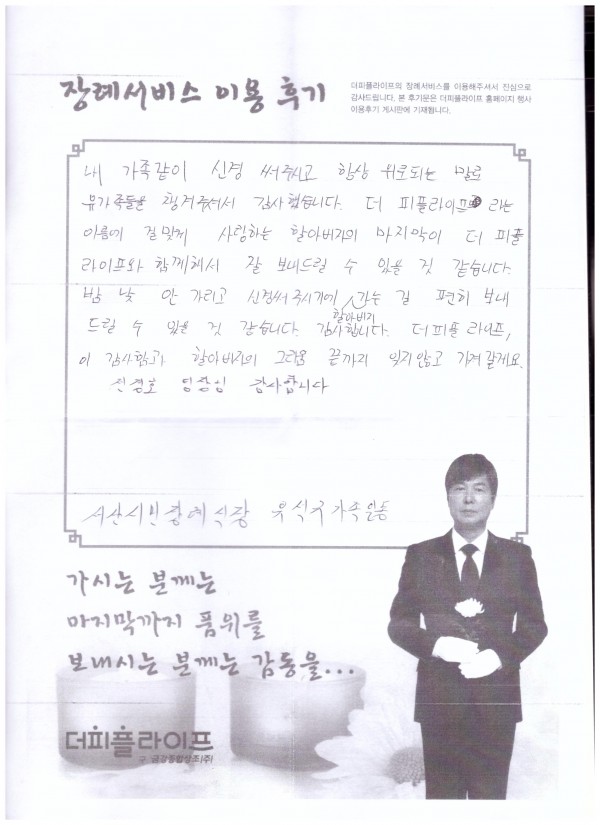 장례서비스 이용 후기
더피플라이프의 장례서비스를 이용해주셔서 진심으로
감사드립니다. 본 후기문은 더피플라이프 홈페이지 행사
이용후기 게시판에 기재됩니다.
내 가족같이 신경 써주시고 항상 위로되는 말로
유가족들을 챙겨주셔서 감사했습니다. 더 피플라이프 라는
이름에 걸맞게 사랑하는 할아버지의 마지막이 더 피플
라이프와 함께해서 잘 보내드릴 수 있을 것 같습니다.
밤 낮 안 가리고 신경써 주시기에 할아버지 가는 길 편히 보내
드릴 수 있을 것 같습니다. 감사합니다. 더피플 라이프,
이 감사함과 할아버지의 그리움 끝까지 잊지않고 가져갈게요.
신경호 팀장님 감사합니다
서산시민장례식장 유식구가족일동
가시는 분께는
마지막까지 품위를
보내시는 분께는 감동을...
더피플라이프
구 금강종합상조(주)